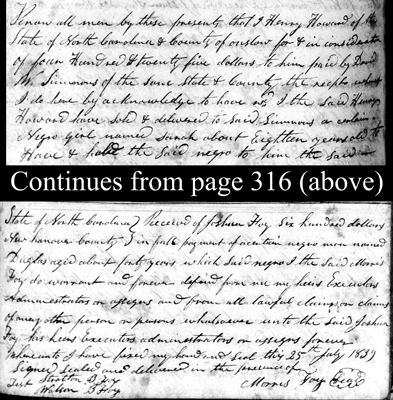 Know all men by these presents that I Henry Howard of the
State of North Carolina & County of onslow for & in consideration
of four Hundred & twenty five dollars to him paid by David
W. Simmons of the same State & County, the receipt whereof
I do here by acknowledge to have recd I the said Henry
Howard have sold & delivered to said Simmons a certain
Negro girl named Sarah about Eighteen years old to
Have & hold the said negro to him the said
Continues from page 316 (above)
State of North Carolina } Received of Joshua Foy Six hundred dollars
New hanover County } in full payment of a certain negro man named
Duglas aged about forty years which said negro I the said Morris
Foy do warrant and forever defend from me my heirs Executors
Administrators or assigns and from all lawful claim or claims
of any other person or persons whatsoever unto the said Joshua
Foy his heirs Executors administrators or assigns forever
I have fixed my hand and seal this 25th July 1839
Signed sealed and delivered in the presence of
Test Stratton B Foy Morris Foy Seal
Watson B Foy